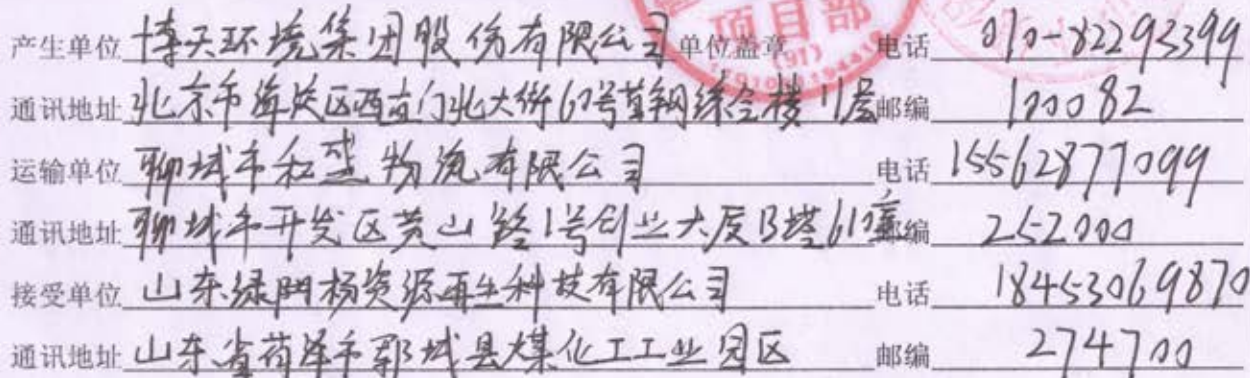 产生单位 博天环境集团股份有限公司 单位盖章 电话 010-82293399
通讯地址 北京市海淀区西直门北大街60号首钢综合楼11层 邮编 100082
运输单位 聊城市和盛物流有限公司 电话 15562877099
通讯地址 聊城市开发区黄山路1号创业大厦B塔610室 邮编 252000
接受单位 山东绿阳杨资源再生科技有限公司 电话 18453069870
通讯地址 山东省菏泽市郓城县煤化工工业园区 邮编 274700
项目部
(97)